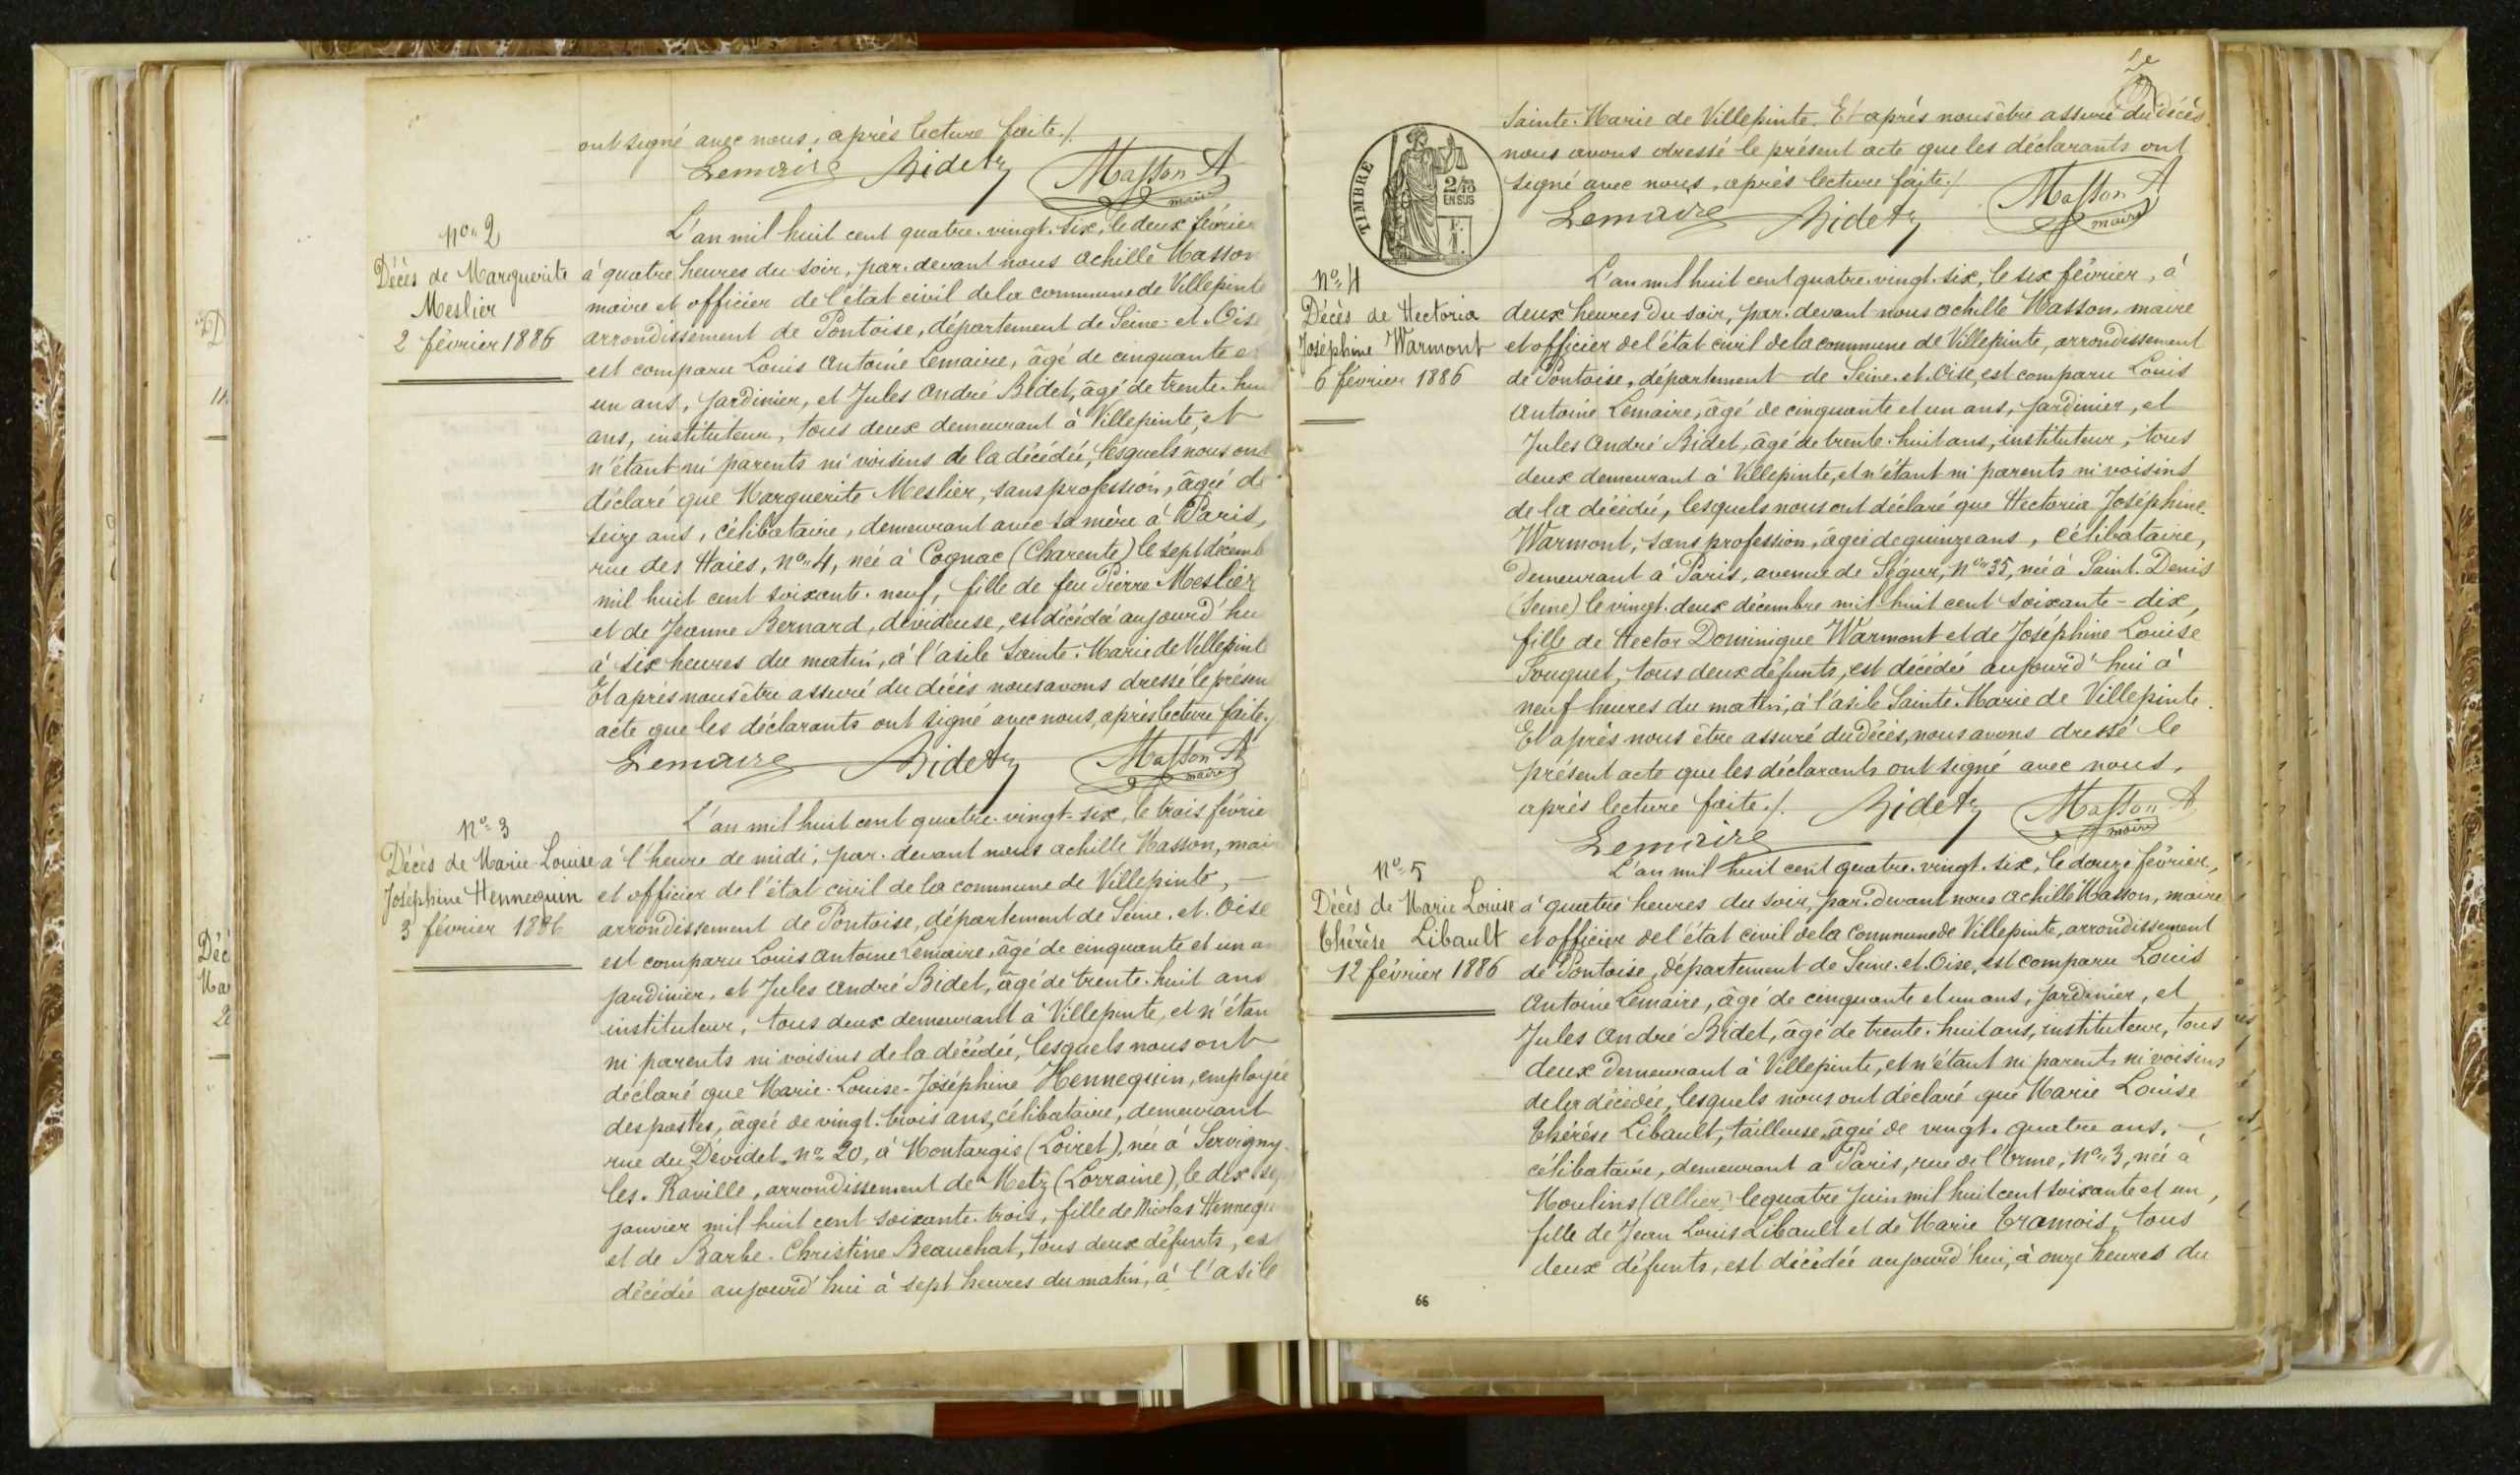 ont signé avec nous, après lecture faite./.
Lemaire Bidet Masson A
maire
nº 2
Décès de Marguerite
Meslier
2 février 1886
L'an mil huit cent quatre-vingt-six, le deux février
à quatre heures du soir, par-devant nous Achille Masson
maire et officier de l'état civil de la commune de Villepinte
arrondissement de Pontoise, département de Seine-et-Oise
est comparu Louis Antoine Lemaire, âgé de cinquante et
un ans, jardinier, et Jules André Bidet, âgé de trente-hui
ans, instituteur, tous deux demeurant à Villepinte, et
n'étant ni parents ni voisins de la décédée, lesquels nous ont
déclaré que Marguerite Meslier, sans profession, âgée de
seize ans, célibataire, demeurant avec sa mère à Paris,
rue des Haies, nº 4, née à Cognac (Charente) le sept décemb
mil huit cent soixante-neuf, fille de feu Pierre Meslier
et de Jeanne Bernard, dévideuse, est décédée aujourd'hu
à six heures du matin, à l'asile Sainte-Marie de Villepint
Et après nous être assuré du décès nous avons dressé le présen
acte que les déclarants ont signé avec nous, après lecture faite./
Lemaire Bidet Masson A
maire
nº 3
Décès de Marie-Louise
Joséphine Hennequin
3 février 1886
L'an mil huit cent quatre-vingt-six, le trois févrie
à l'heure de midi, par-devant nous Achille Masson, mai
et officier de l'état civil de la commune de Villepinte, —
arrondissement de Pontoise, département de Seine-et-Oise
est comparu Louis Antoine Lemaire, âgé de cinquante et un an
jardinier, et Jules André Bidet, âgé de trente-huit ans
instituteur, tous deux demeurant à Villepinte, et n'étan
ni parents ni voisins de la décédée, lesquels nous ont
déclaré que Marie-Louise-Joséphine Hennequin, employée
des postes, âgée de vingt-trois ans, célibataire, demeurant
rue du Dévidet, nº 20, à Montargis (Loiret), née à Servigny-
les-Raville, arrondissement de Metz (Lorraine), le dix sep
janvier mil huit cent soixante-trois, fille de Nicolas Hennequ
et de Barbe-Christine Beauchat, tous deux défunts, est
décédée aujourd'hui à sept heures du matin, à l'asile
Sainte-Marie de Villepinte. Et après nous être assuré du décès
nous avons dressé le présent acte que les déclarants ont
signé avec nous, après lecture faite./
Lemaire Bidet Masson A
maire
TIMBRE
2/10
EN SUS
F.
1.
nº 4
Décès de Hectoria
Joséphine Warmont
6 février 1886
L'an mil huit cent quatre-vingt-six, le six février, à
deux heures du soir, par-devant nous Achille Masson, maire
et officier de l'état civil de la commune de Villepinte, arrondissement
de Pontoise, département de Seine-et-Oise, est comparu Louis
Antoine Lemaire, âgé de cinquante et un ans, jardinier, et
Jules André Bidet, âgé de trente-huit ans, instituteur, tous
deux demeurant à Villepinte, et n'étant ni parents ni voisins
de la décédée, lesquels nous ont déclaré que Hectoria Joséphine
Warmont, sans profession, âgée de quinze ans, célibataire,
demeurant à Paris, avenue de Ségur, nº 35, née à Saint-Denis
(Seine) le vingt-deux décembre mil huit cent soixante-dix,
fille de Hector Dominique Warmont et de Joséphine Louise
Fouquet, tous deux défunts, est décédée aujourd'hui à
neuf heures du matin, à l'asile Sainte-Marie de Villepinte.
Et après nous être assuré du décès, nous avons dressé le
présent acte que les déclarants ont signé avec nous,
après lecture faite./. Bidet Masson A
Lemaire maire
nº 5
Décès de Marie Louise
Thérèse Libault
12 février 1886
L'an mil huit cent quatre-vingt-six, le douze février,
à quatre heures du soir, par-devant nous Achille Masson, maire
et officier de l'état civil de la commune de Villepinte, arrondissement
de Pontoise, département de Seine-et-Oise, est comparu Louis
Antoine Lemaire, âgé de cinquante et un ans, jardinier, et
Jules André Bidet, âgé de trente-huit ans, instituteur, tous
deux demeurant à Villepinte, et n'étant ni parents ni voisins
de la décédée, lesquels nous ont déclaré que Marie Louise
Thérèse Libault, tailleuse, âgée de vingt-quatre ans, —
célibataire, demeurant à Paris, rue de l'Orme, nº 3, née à
Moulins (Allier) le quatre juin mil huit cent soixante et un,
fille de Jean Louis Libault et de Marie Tramois, tous
deux défunts, est décédée aujourd'hui, à onze heures du
66
Déc
Ma
2